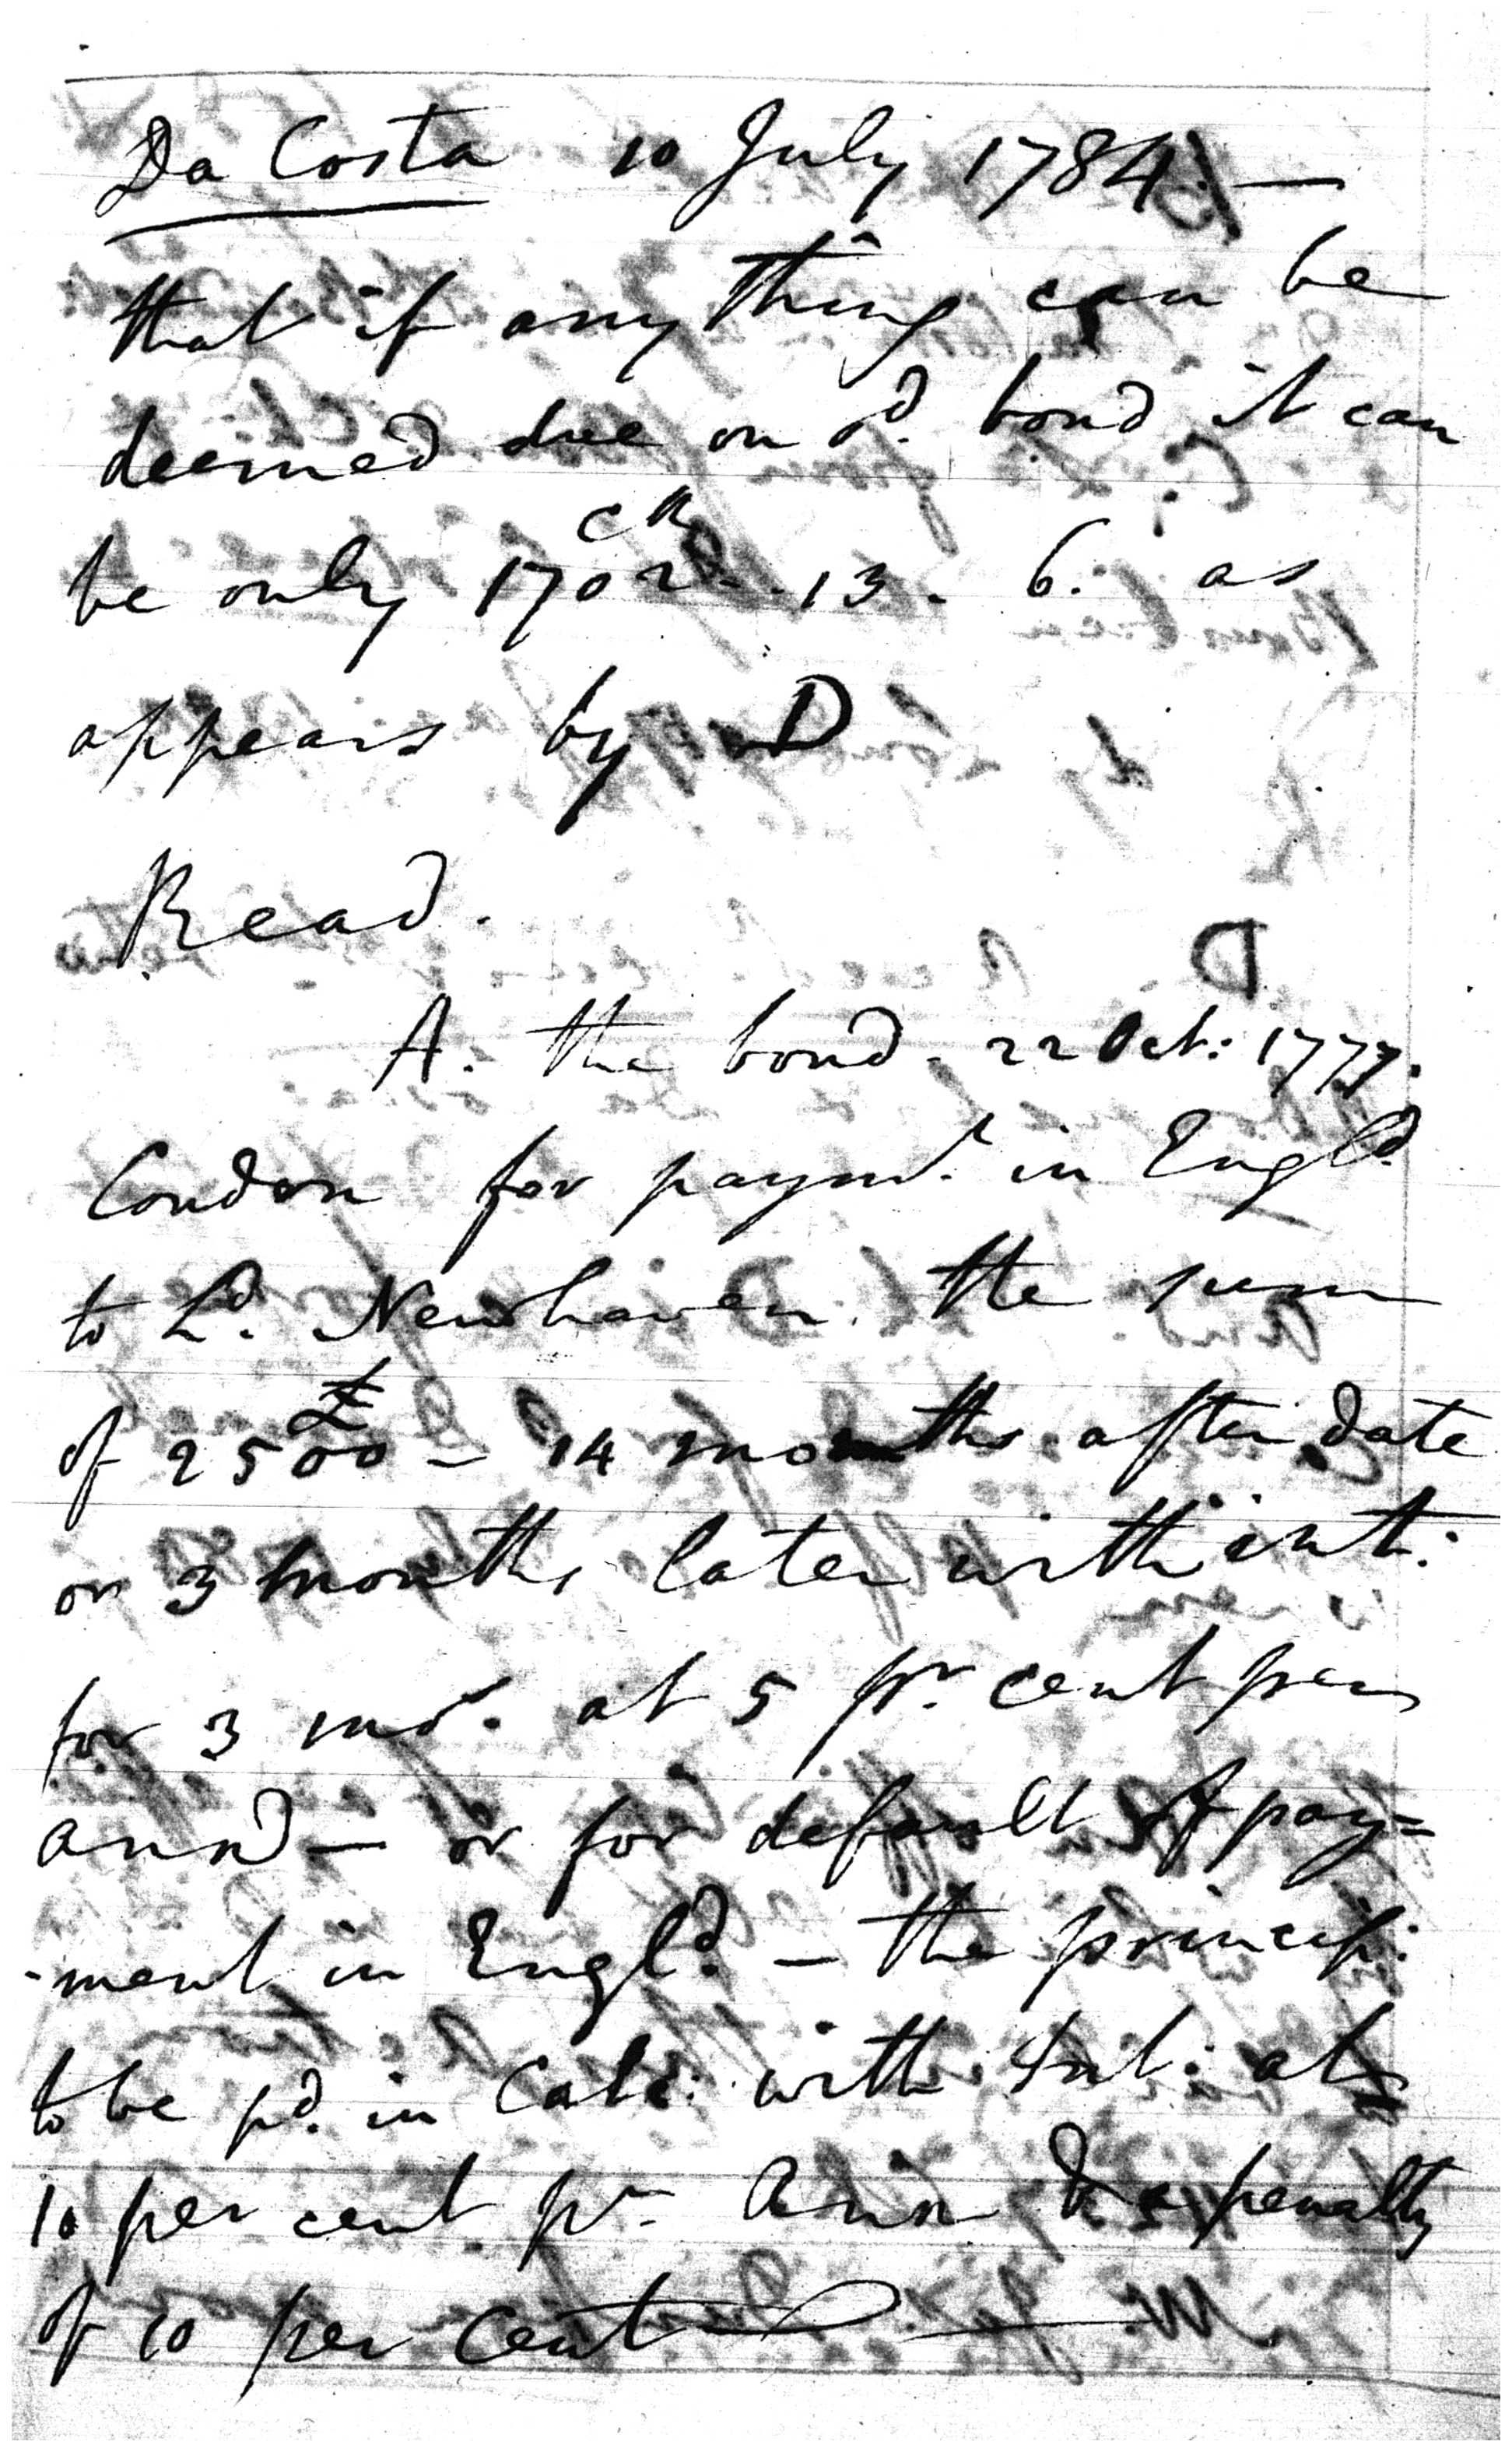 Da Costa 10 July 1784. —
that if any thing can be
deemed due on sd. bond it can
be only CR 1702 - . 13 . 6 . as
appears by D
Read.
A. the bond . 22 Oct: 1777.
London for paymt. in Engld.
to Ld. Newhaven. the sum
of £2500 - 14 months after date
or 3 months later with int:
for 3 mos. at 5 pr. cent per
annd — or for default of pay=
-ment in Engld. — the princip:
to be pd. in Calc: with Int: at
10 per cent pr. Ann & a penalty
of 10 per cent